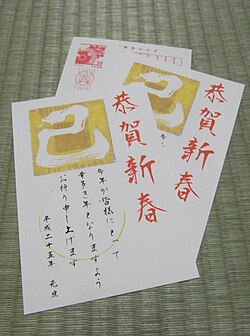 恭賀新春
今年が皆様にとって
幸多き年となりますよう
お祈り申し上げます
平成二十五年 元旦
恭賀新春
今